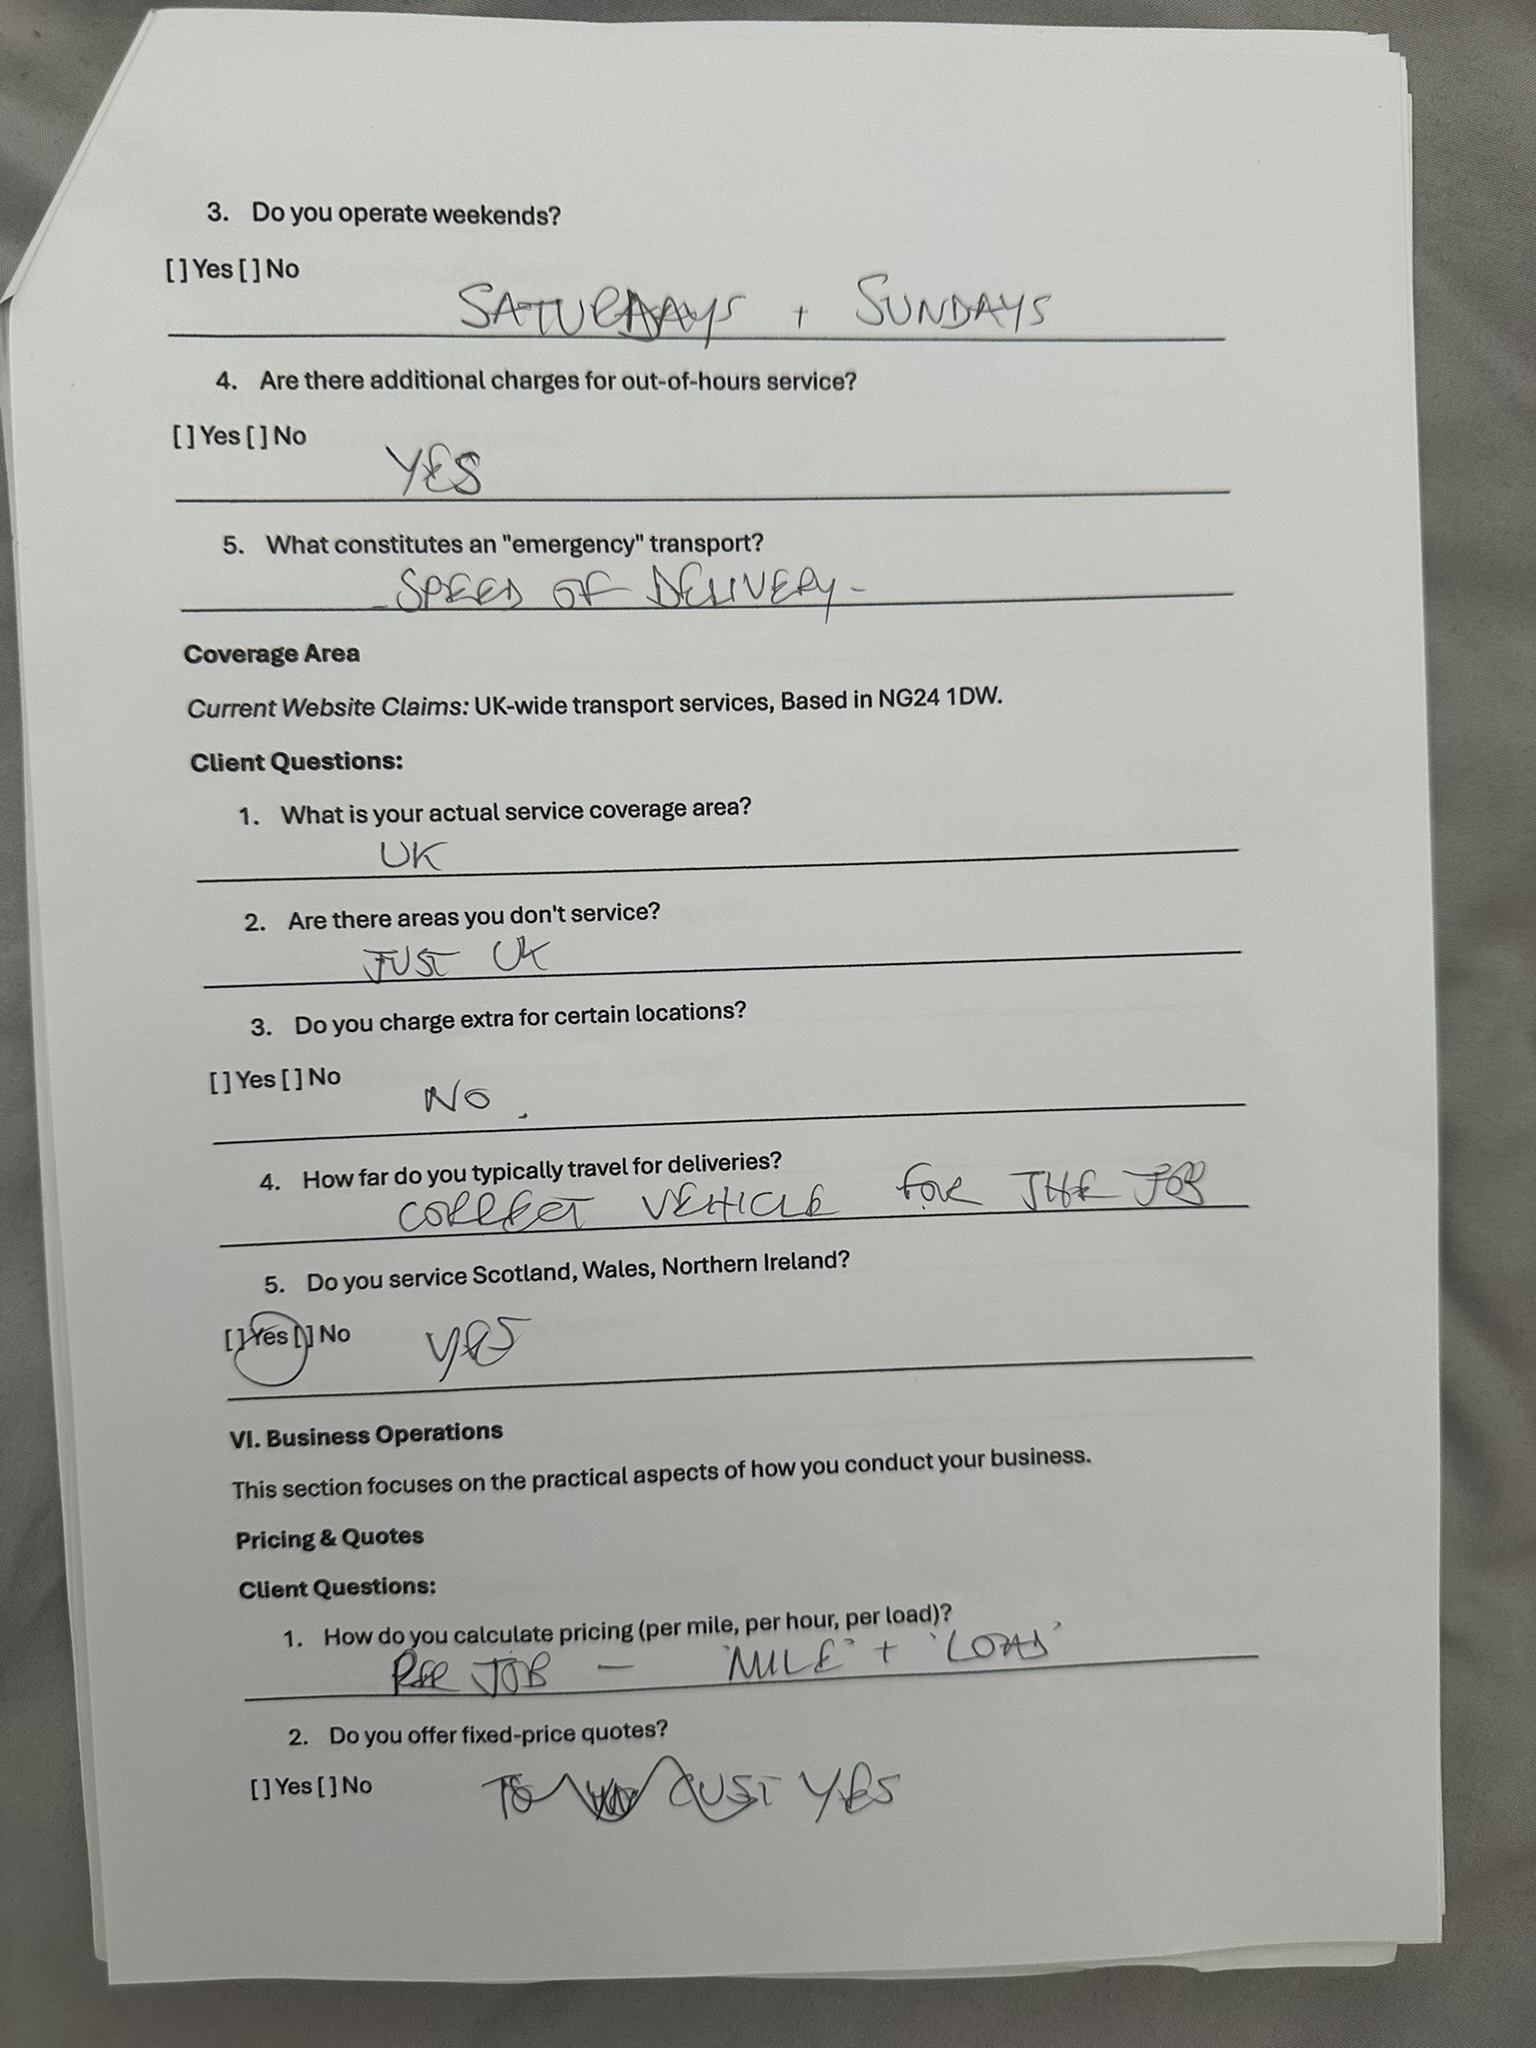 3. Do you operate weekends?
[ ] Yes [ ] No
SATURDAYS + SUNDAYS
4. Are there additional charges for out-of-hours service?
[ ] Yes [ ] No
YES
5. What constitutes an "emergency" transport?
- SPEED OF DELIVERY -
Coverage Area
Current Website Claims: UK-wide transport services, Based in NG24 1DW.
Client Questions:
1. What is your actual service coverage area?
UK
2. Are there areas you don't service?
JUST UK
3. Do you charge extra for certain locations?
[ ] Yes [ ] No
NO.
4. How far do you typically travel for deliveries?
CORRECT VEHICLE FOR THE JOB
5. Do you service Scotland, Wales, Northern Ireland?
[ ] Yes [ ] No
YES
VI. Business Operations
This section focuses on the practical aspects of how you conduct your business.
Pricing & Quotes
Client Questions:
1. How do you calculate pricing (per mile, per hour, per load)?
PER JOB - 'MILE' + 'LOAD'
2. Do you offer fixed-price quotes?
[ ] Yes [ ] No
TO CUST YES